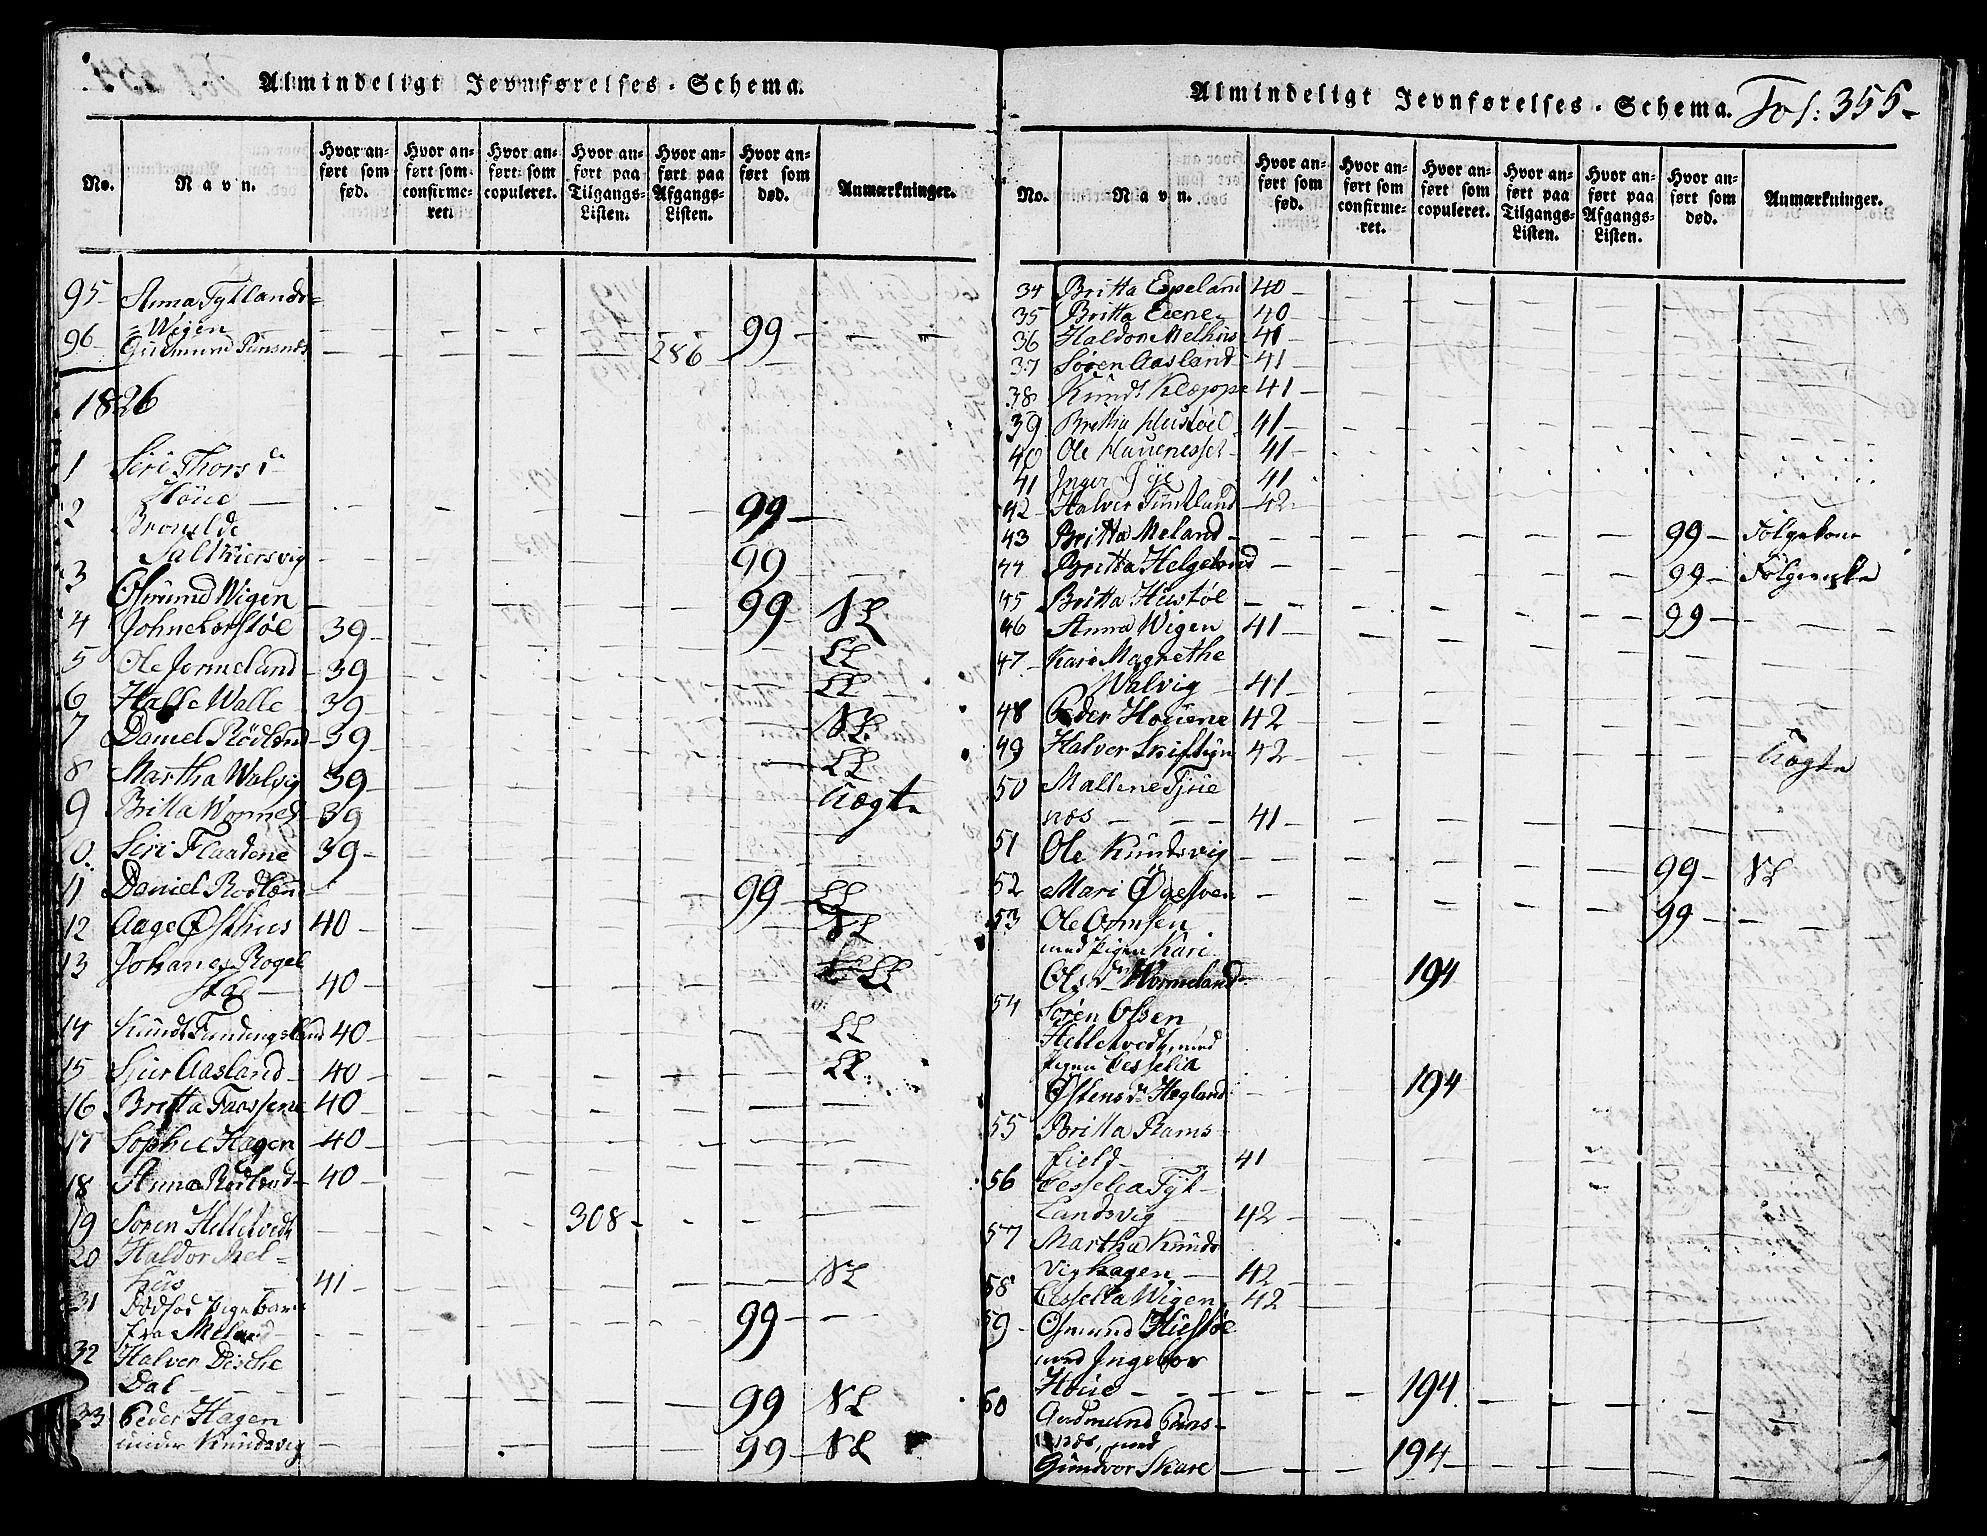 Almindeligt Jevnførelses-Schema.
No. Navn. Hvor anført som født. Hvor anført som confirmeret. Hvor anført som copuleret. Hvor anført paa Tilgangs-Listen. Hvor anført paa Afgangs-Listen. Hvor anført som død. Anmærkninger.
95 Anna Tytlands=
= Wigen 99
96 Gudmund 286
1826
1 Siri Thorsd
Höue 99
2 Bronilde
Saltkiersvig 99
3 Osmund Wigen 99 NL
4 John 39 LL
5 Ole Jormeland 39 LL
6 Halle Walle 39 NL
7 Daniel Rödland 39 LL
8 Martha Walvig 39 Uægte
9 Britta Wormes 39
0. Siri Flaadene 39
11 Daniel Rodland 99 LL
12 Aage Østhus 40 NL
13 Johanes Rogel
stad 40 LL
14 Knudt Tendengsland 40 LL
15 Sjur Aasland 40 LL
16 Britta Faassene 40
17 Sophie Hagen 40
18 Anna Rödland 40
19 Soren Helletvedt 308
20 Haldor Mel=
hus 41 NL
31 Dødfød Pigebarn
fra Meland 99
32 Halver Diske
Dal 99 NL
33 Peder Hagen
under Knudsvig 99 NL
Almindeligt Jevnførelses-Schema. Fol: 355
No. Navn. Hvor anført som fød. Hvor anført som confirmeret. Hvor anført som copuleret. Hvor anført paa Tilgangs-Listen. Hvor anført paa Afgangs-Listen. Hvor anført som død. Anmærkninger.
34 Britta Epeland 40
35 Britta Eiene 40
36 Haldor Melhus 41
37 Søren Aasland 41
38 Knudt Kleppe 41
39 Britta Hustøel 41
40 Ole Hauenesset 41
41 Inger 41
42 Halver 42
43 Britta Meland 99 Følgekone
44 Britta Helgeland 99
45 Britta Hustøl 99
46 Anna Wigen 41
47 Kari Magrethe
Walvig 41
48 Peder Houene 42
49 Halver Skiftun 42 Uægte
50 Mallene Tjue
næs 41
51 Ole Knudsvig 99 NL
52 Mari 99
53 Ole Ormsen
med Pigen Kari
Olsdr Wormeland 194
54 Søren Olsen
Helletvedt, med
Pigen Cesselia
Østensdr Hegland 194
55 Britta Rams-
field 41
56 Cesselia Tyt-
landsvig 42
57 Martha Knuds
vighagen 42
58 Cessella Wigen 42
59 Osmund Hustöe
med Ingebor
Höue 194
60 Gudmund
næs, med
Gundvor Skare 194